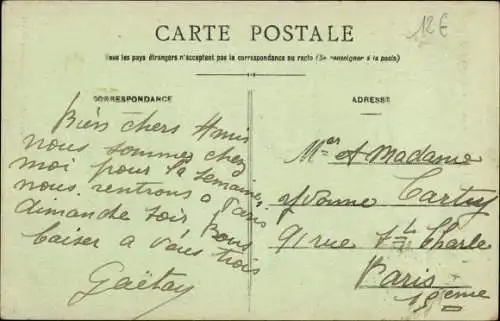 CARTE POSTALE
12€
Tous les pays étrangers n'acceptent pas la correspondance au recto (Se renseigner à la poste)
CORRESPONDANCE
ADRESSE
Bien chers Amis
nous sommes chez
moi pour la semaine,
nous rentrons a Paris
dimanche soir Bons
baiser a vous trois
Gaëtay
Mer et Madame
Yvonne Cartuy
91 rue St Charle
Paris
15eme